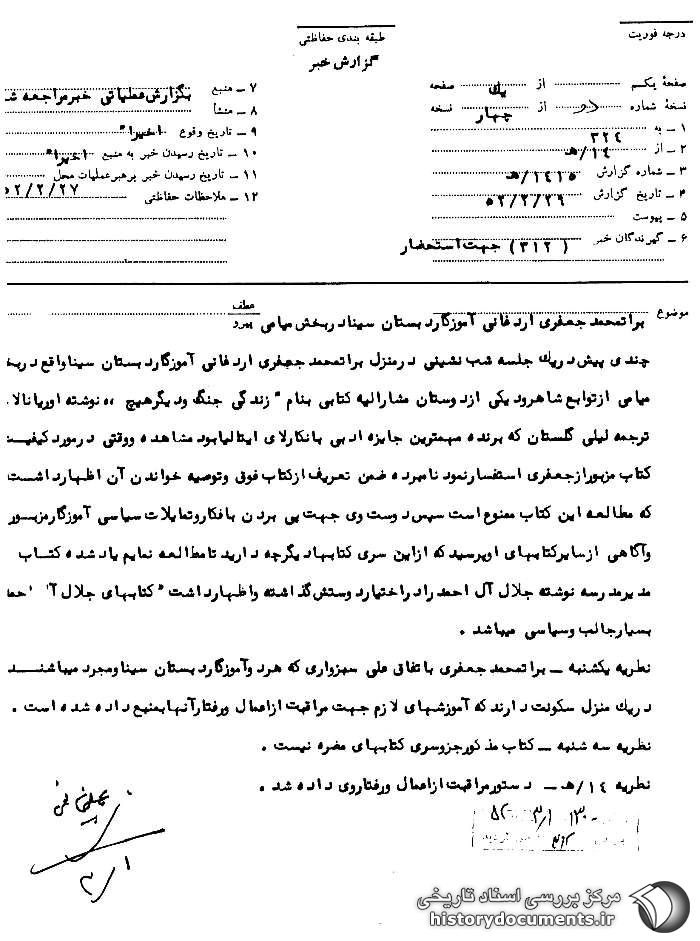 درجه فوریت
طبقه بندی حفاظتی
گزارش خبر
صفحهٔ یکم از یك صفحه
نسخهٔ شماره دو از چهار نسخه
۱ ـ به ۳۲٤
۲ ـ از ۱٤/هـ
۳ ـ شماره گزارش ۱٤۱۵/هـ
۴ ـ تاریخ گزارش ۵۲/۲/۲۹
۵ ـ پیوست
۶ ـ گیرندگان خبر (۳۱۲) جهت استحضار
۷ ـ منبع بگزارش عملیاتی خبر مراجعه ش
۸ ـ منشأ
۹ ـ تاریخ وقوع اخیرا"
۱۰ ـ تاریخ رسیدن خبر به منبع اخیرا"
۱۱ ـ تاریخ رسیدن خبر برهبر عملیات محل ۵۲/۲/۲۷
۱۲ ـ ملاحظات حفاظتی
موضوع براتمحمد جعفری اردفانی آموزگار دبستان سینا در بخش میامی
عطف
پیرو
چندی پیش در یك جلسه شب نشینی در منزل براتمحمد جعفری اردفانی آموزگار دبستان سینا واقع در بخ
میامی از توابع شاهرود یکی از دوستان مشارالیه کتابی بنام " زندگی جنگ و دیگر هیچ ,, نوشته اوریانا فالا
ترجمه لیلی گلستان که برنده مهمترین جایزه ادبی بانکارلای ایتالیا بود مشاهده و وقتی در مورد کیفیت
کتاب مزبور از جعفری استفسار نمود نامبرده ضمن تعریف از کتاب فوق و توصیه خواندن آن اظهار داشت
که مطالعه این کتاب ممنوع است سپس دوست وی جهت پی بردن بافکار و تمایلات سیاسی آموزگار مزبور
وآگاهی از سایر کتابهای او پرسید که از این سری کتابها دیگر چه دارید تا مطالعه نمایم یاد شده کتاب
مدیر مدرسه نوشته جلال آل احمد را در اختیار دوستش گذاشته و اظهار داشت " کتابهای جلال آل احمد
بسیار جالب و سیاسی میباشد .
نظریه یکشنبه ــ براتمحمد جعفری باتفاق علی سبزواری که هر دو آموزگار دبستان سینا و مجرد میباشند
در یك منزل سکونت دارند که آموزشهای لازم جهت مراقبت از اعمال و رفتار آنها بمنبع داده شده است .
نظریه سه شنبه ــ کتاب مذکور جزو سری کتابهای مضره نیست .
نظریه ۱٤/هـ ــ دستور مراقبت از اعمال و رفتار وی داده شد .
۳/۱
مرکز بررسی اسناد تاریخی
historydocuments.ir